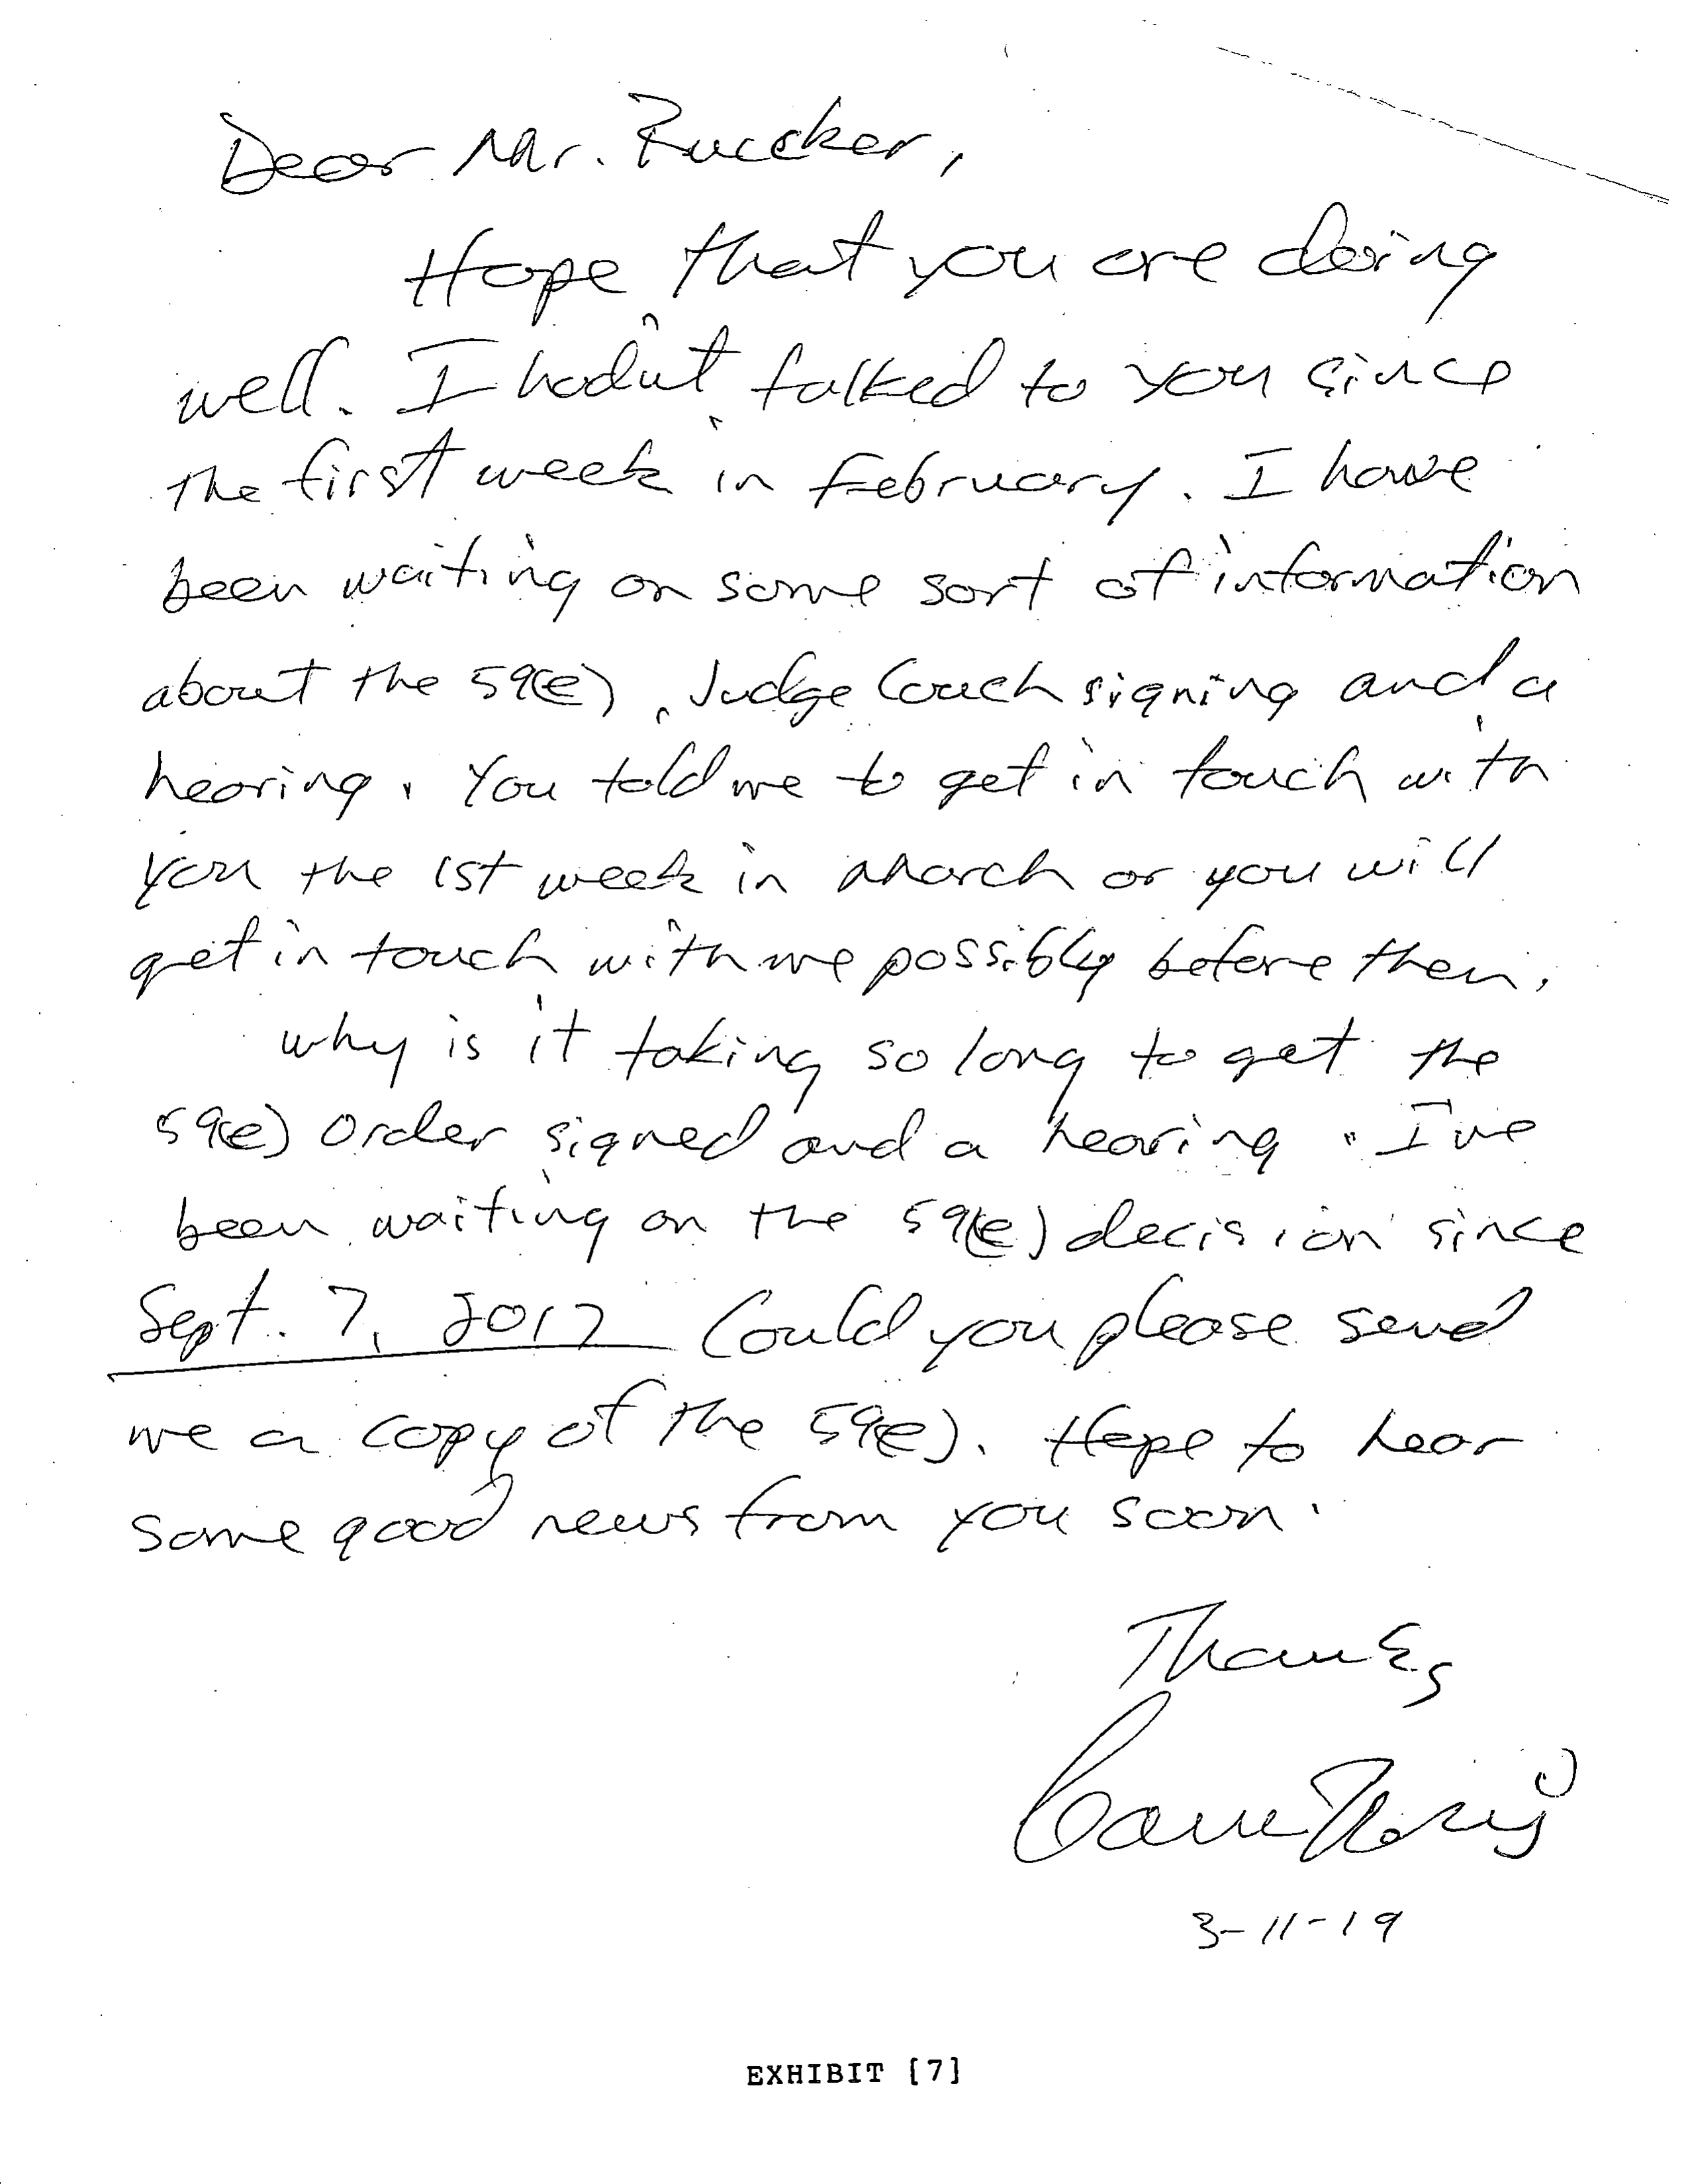 Dear Mr. Ruccker,
Hope that you are doing
well. I hadn't talked to you since
the first week in February. I have
been waiting on some sort of information
about the 59(e), Judge Couch signing and a
hearing. You told me to get in touch with
you the 1st week in March or you will
get in touch with me possibly before then.
why is it taking so long to get the
59(e) order signed and a hearing. I've
been waiting on the 59(e) decision since
Sept. 7, 2017 Could you please send
me a copy of the 59(e). Hope to hear
some good news from you soon.
Thanks,
3-11-19
EXHIBIT [7]